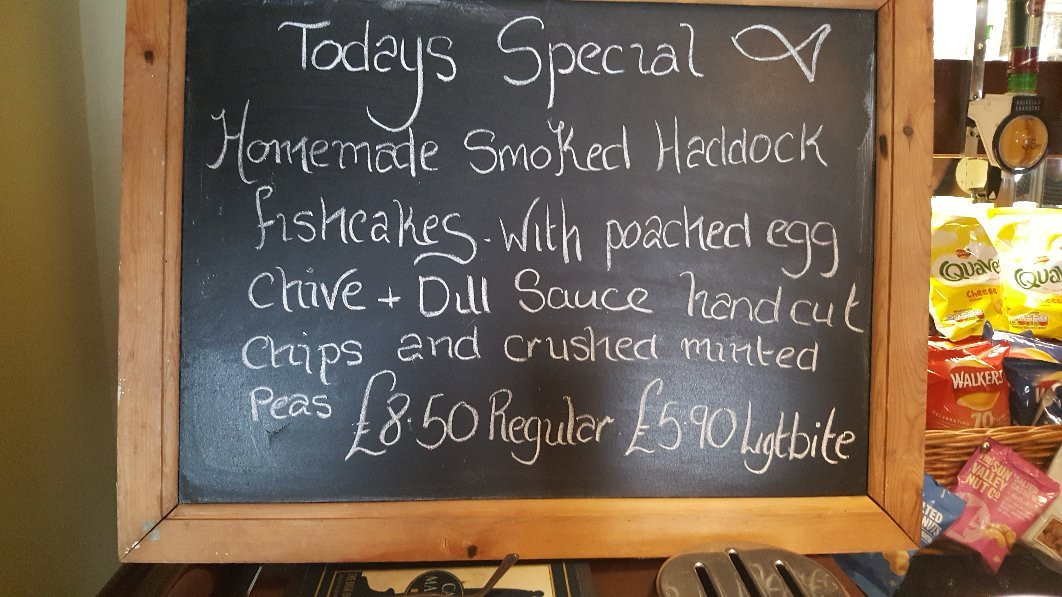 Todays Special
Homemade Smoked Haddock
fishcakes. With poached egg
Chive + Dill Sauce hand cut
Chips and crushed minted
Peas £8.50 Regular £5.90 Ligtbite
Quave
Quav
Cheese
WALKERS
CELEBRATING
70
THE
SUN
VALLEY
NUT CO